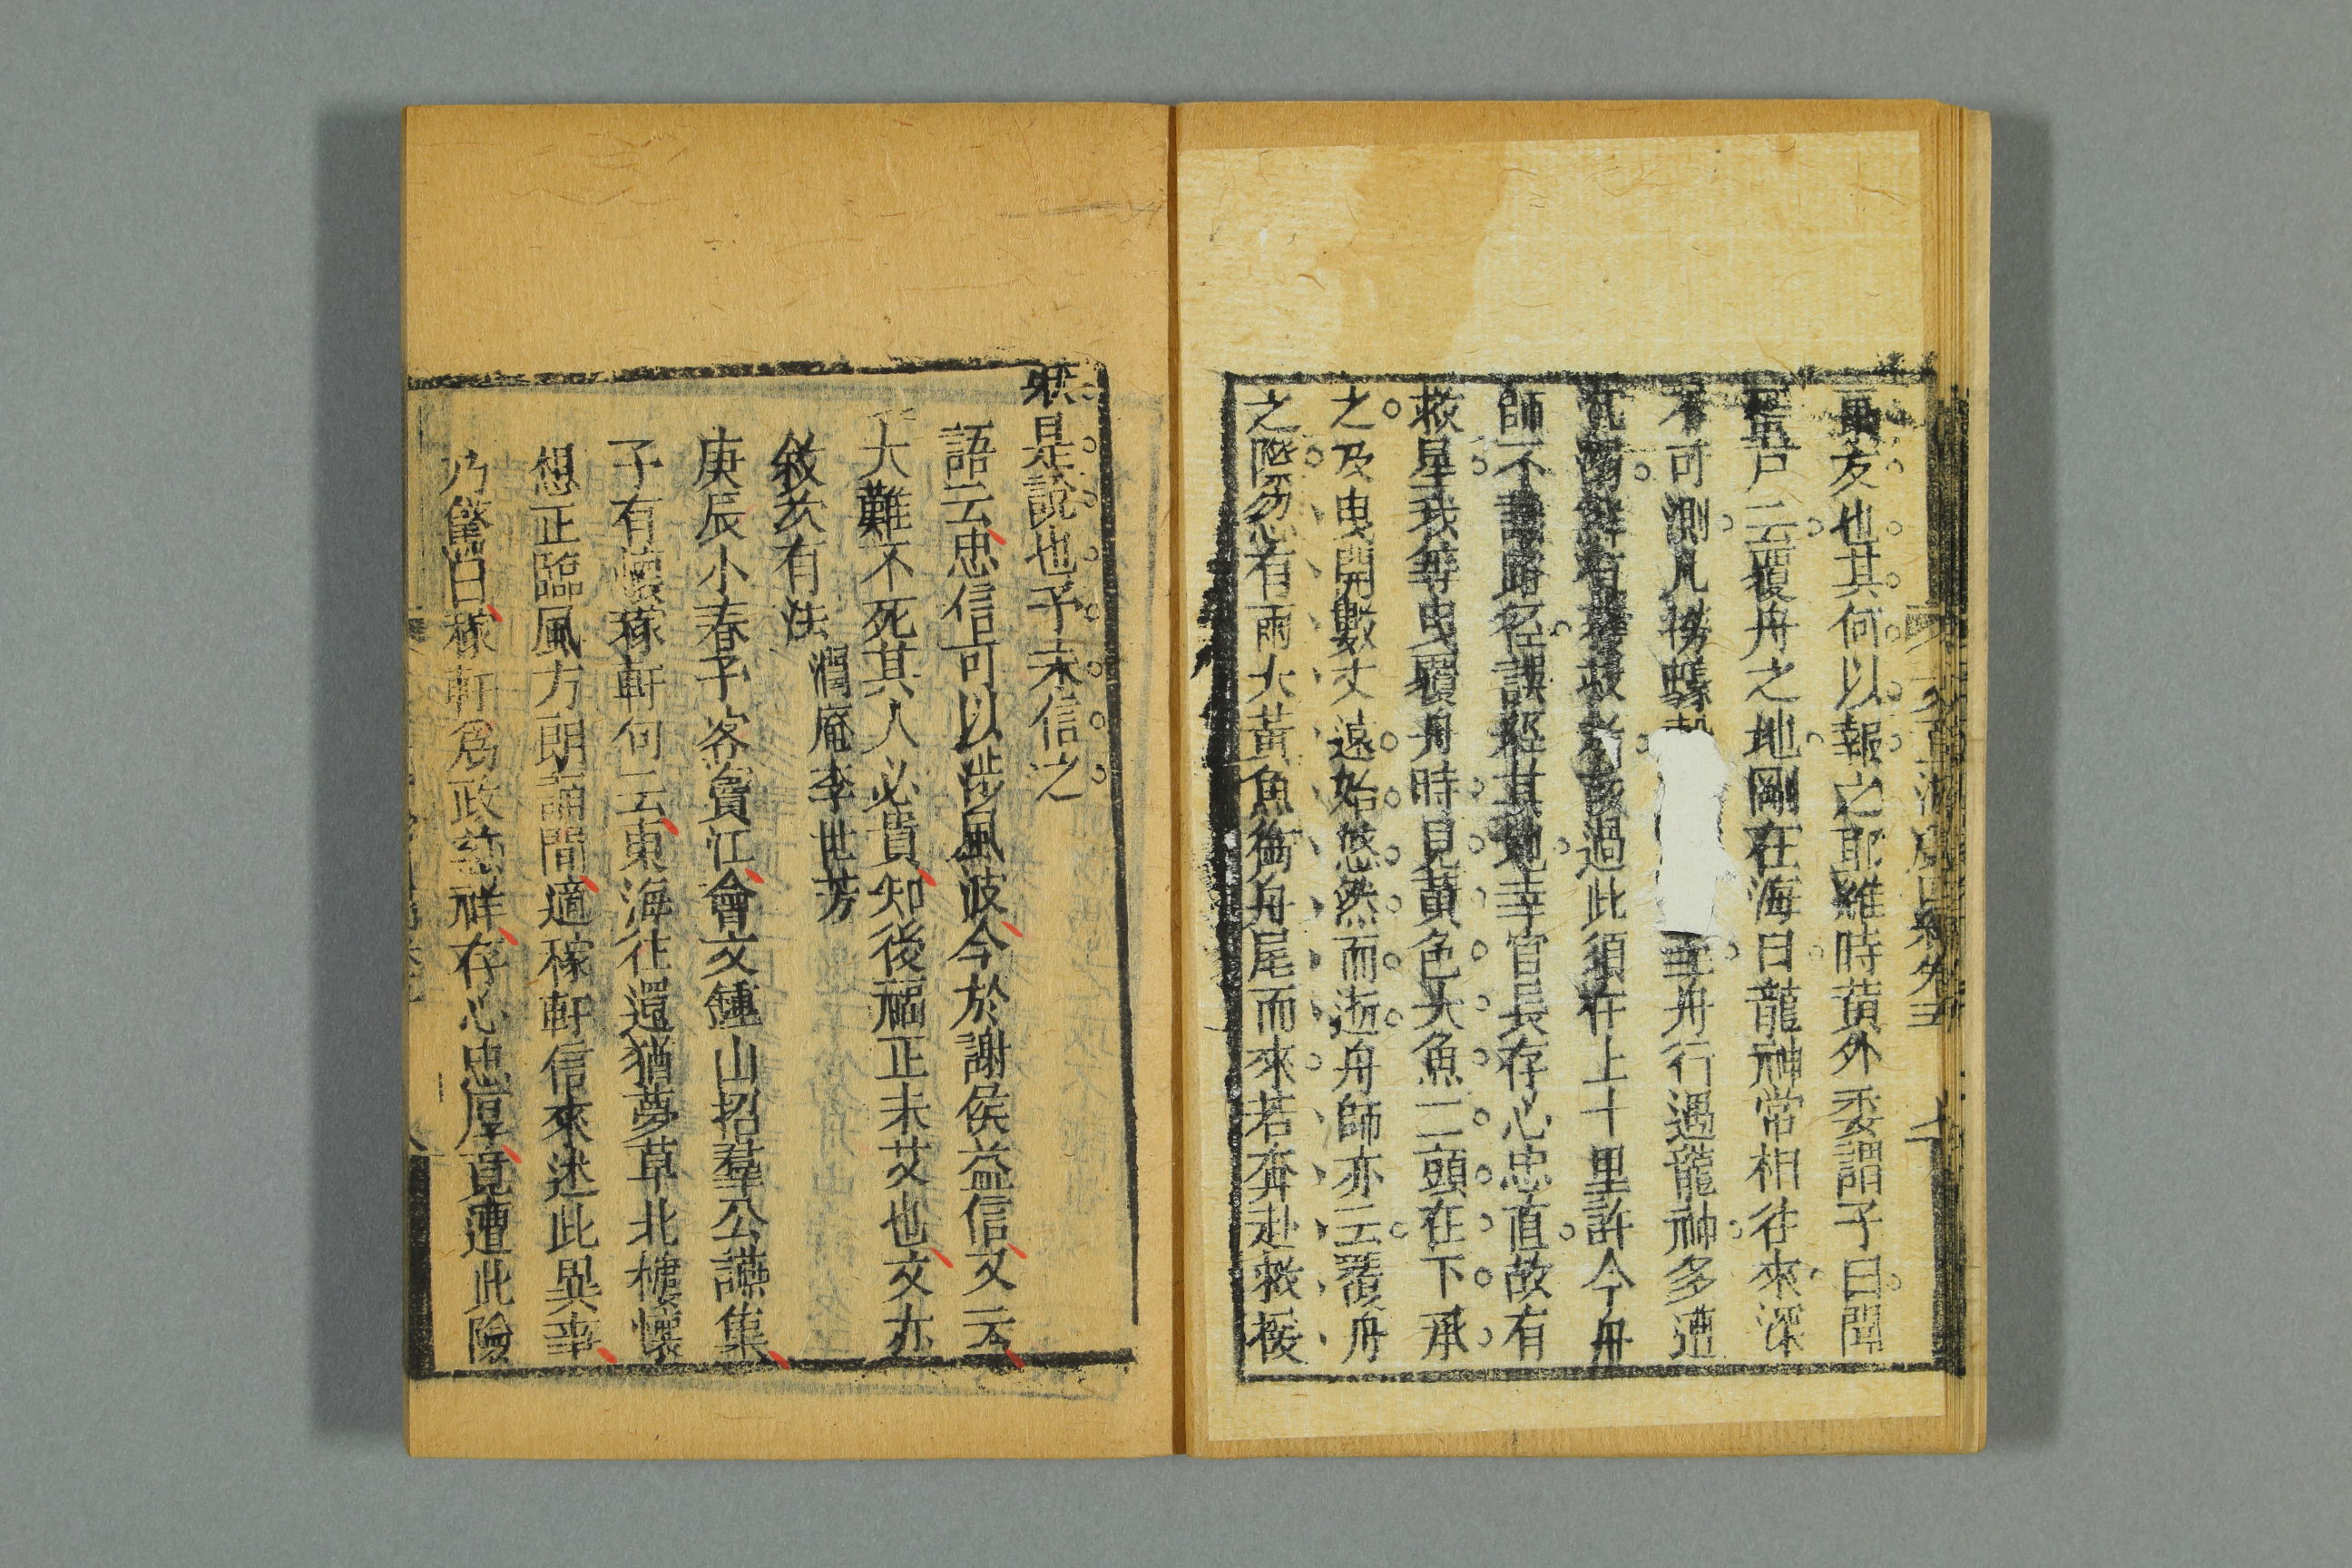 友也其何以報之耶維時蕢外委謂予曰聞
戸云覆舟之地剛在海日龍神常相往來深
不可測凡撈蟂舟行遇龍神多遭
過此須在上十里許今舟
師不識路徑誤經其地幸官長存心忠直故有
救星我等曳覆舟時見黃色大魚二頭在下承
之及曳開數丈遠始悠然而逝舟師亦云覆舟
之際忽有兩大黃魚銜舟尾而來若奔赴救援
然是說也予未信之
語云忠信可以涉風波今於謝侯益信又云
大難不死其人必貴知後福正未艾也文亦
敘亥有法 澗庵李世芳
庚辰小春予客賓江會文鍾山招羣公讌集
子有懷稼軒句云東海往還猶夢草北樓懷
想正臨風方朗誦間適稼軒信來述此異幸
乃驚曰稼軒為政慈祥存心忠厚竟遭此險